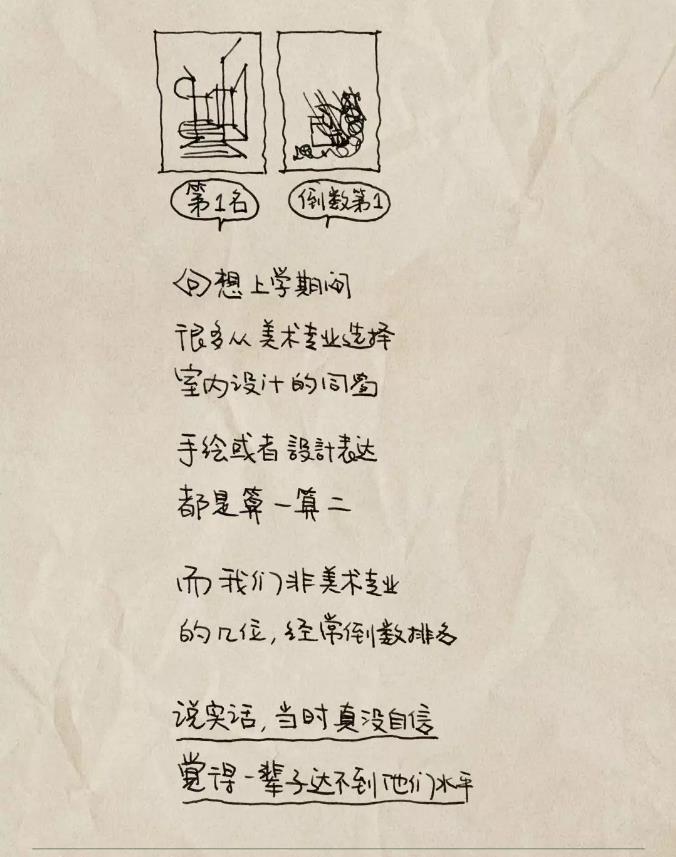 第1名
倒数第1
回想上学期间
很多从美术专业选择
室内设计的同学
手绘或者設計表达
都是算一算二
而我们非美术专业
的几位，经常倒数排名
说实话，当时真没自信
觉得一辈子达不到他们水平